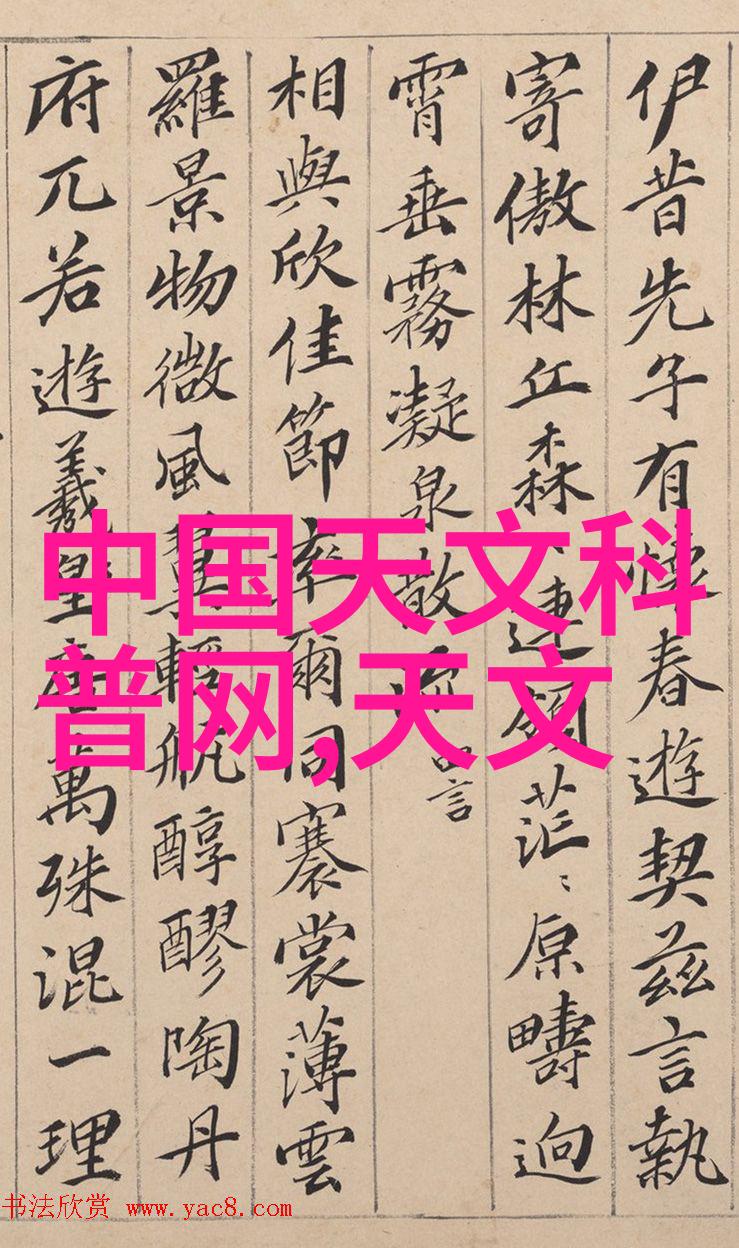 伊昔先子有懷春遊契茲言執
寄傲林丘森〻連領茫〻原疇迥
霄垂霧凝泉散流 言
相與欣佳節率爾同褰裳薄雲
羅景物微風翼輕航醇醪陶丹
府兀若遊羲皇唐萬殊混一理
中国天文科
普网,天文
书法欣赏 www.yac8.com